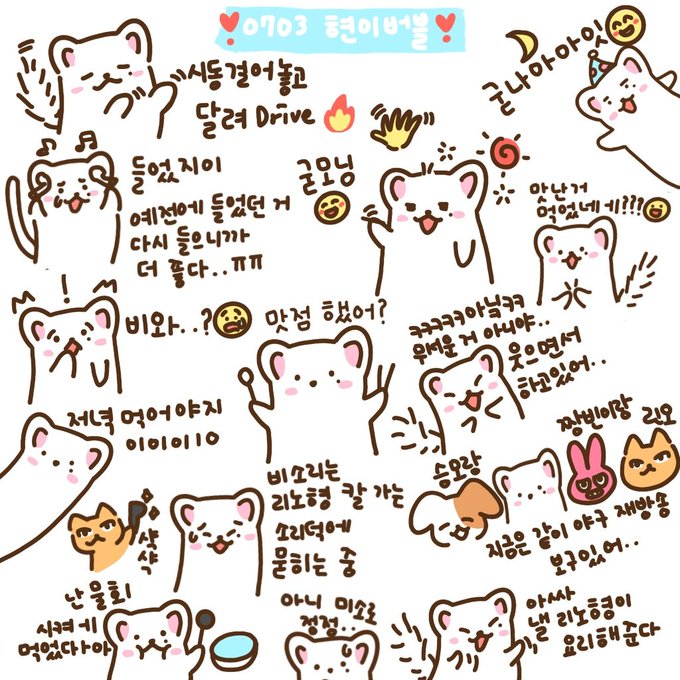 0703 현이버블
시동걸어놓고
달려 Drive
굳나아아잇
들었지이
예전에 들었던 거
다시 들으니까
더 좋다..ㅠㅠ
굳모닝
맛난거
먹었네게???
비와..?
맛점 했어?
ㅋㅋㅋㅋㅋ아닠ㅋㅋ
무서운 거 아니야..
웃으면서
하고있어..
저녁 먹어야지
이이이이
비소리는
리노형 칼 가는
소리덕에
묻히는 중
샥
샥
승모랑
짱빈이랑
리노
지금은 같이 야구 재방송
보구있어..
난 물회
시켜게
먹었다아아
아니 미소로
정정..
아싸
낼 리노형이
요리해준다